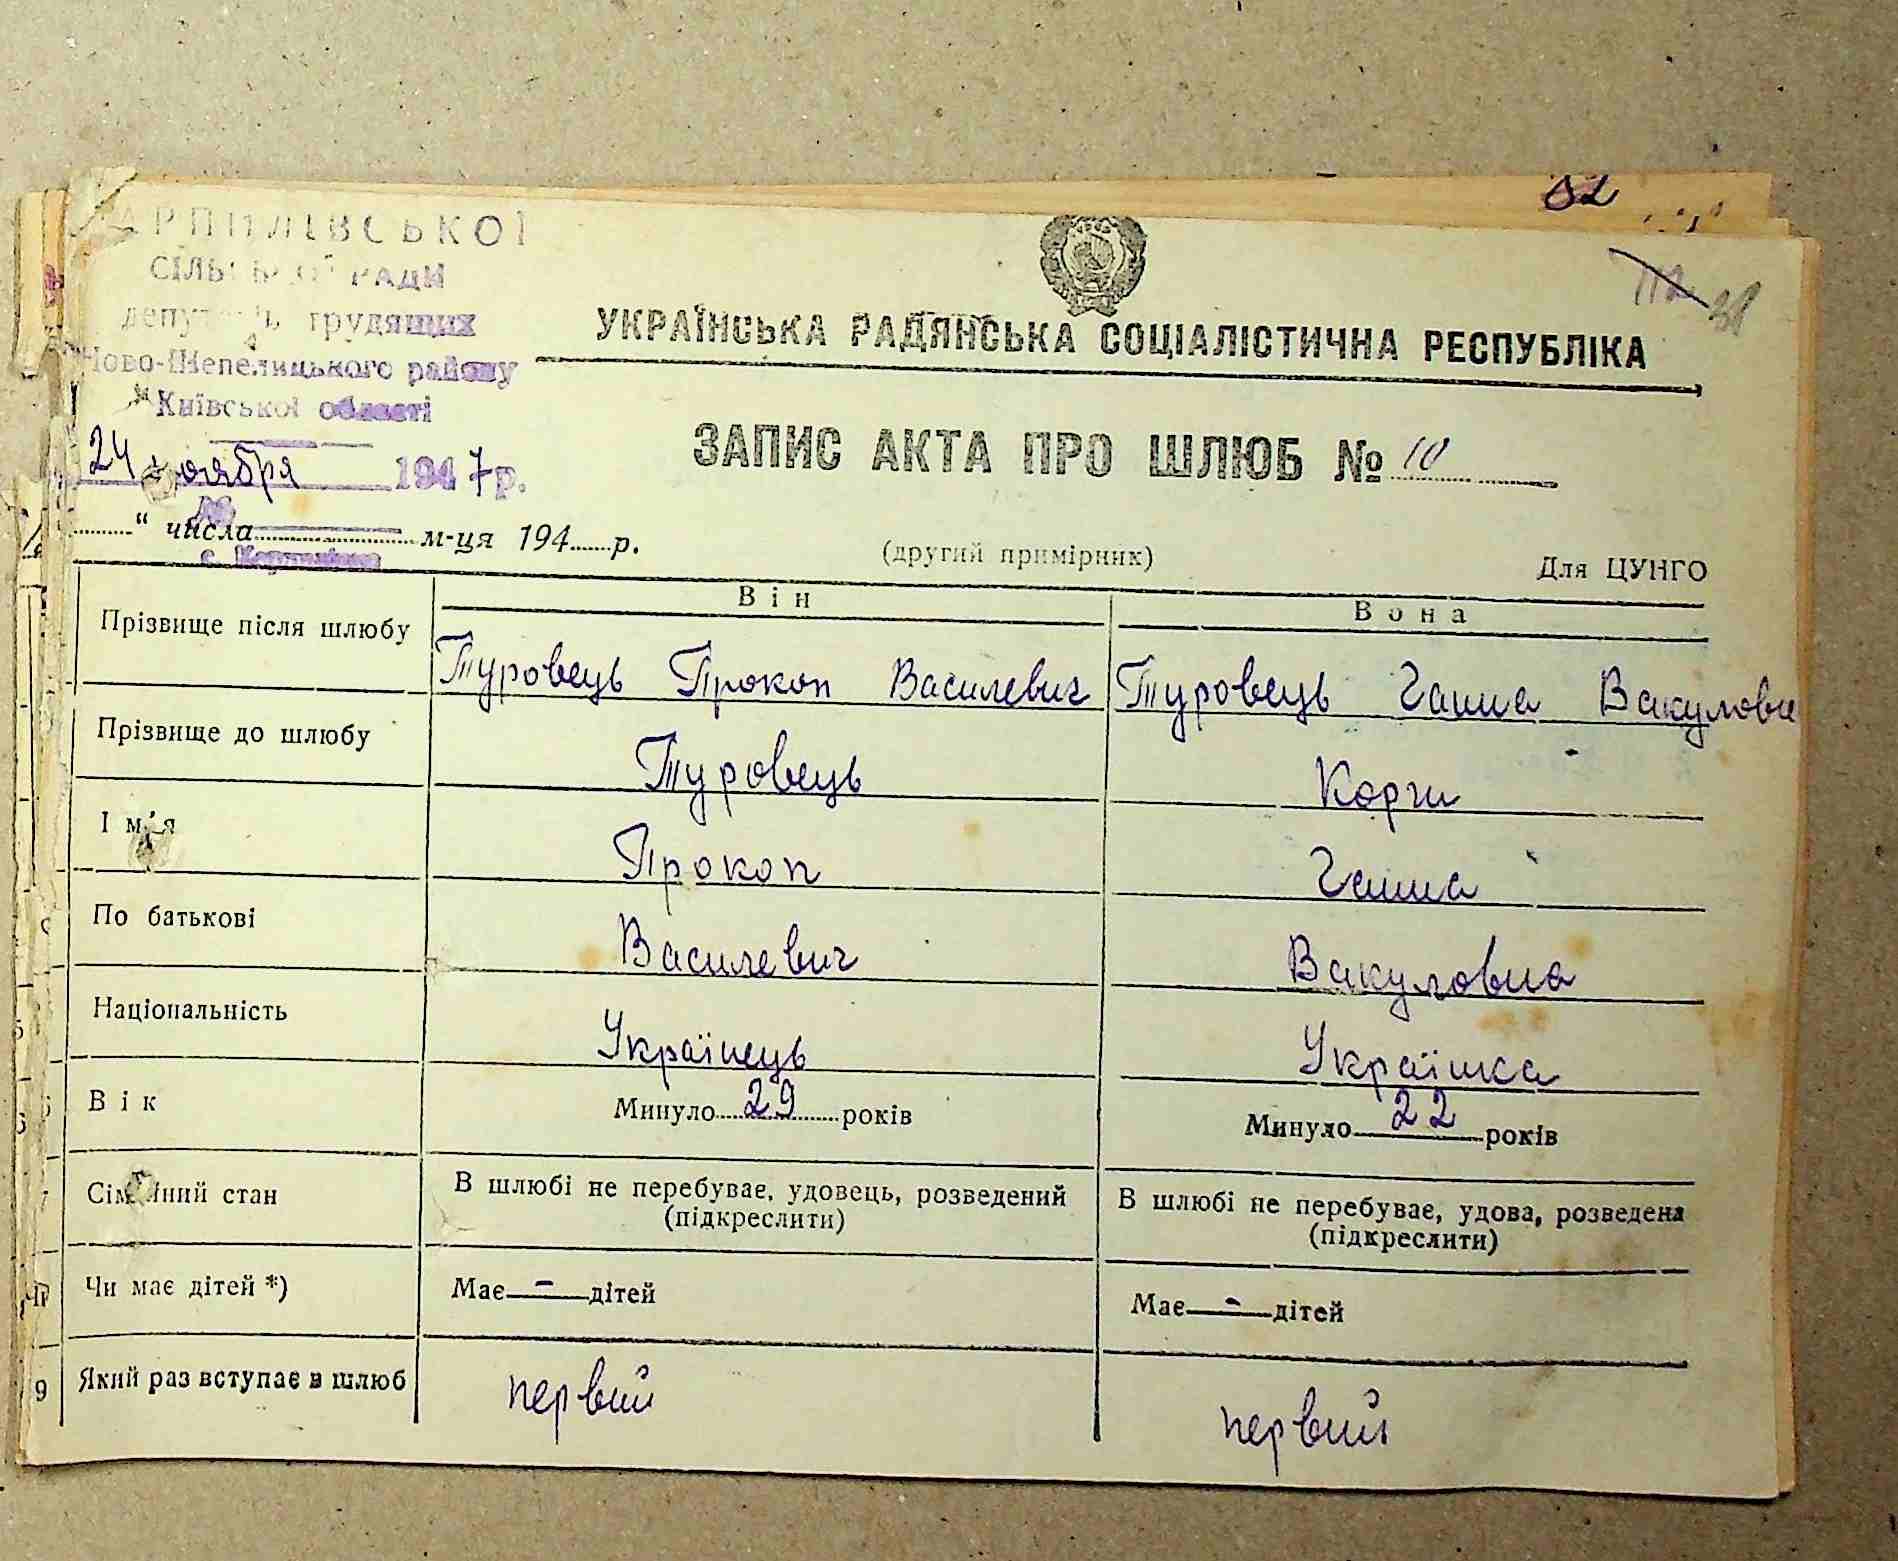 82
31
АРПИЛІВСЬКОЇ
СІЛЬ РАДИ
депу трудящих
Ново-Шепелицького району
Київської області
24 ноября 1947 р.
УКРАЇНСЬКА РАДЯНСЬКА СОЦІАЛІСТИЧНА РЕСПУБЛІКА
ЗАПИС АКТА ПРО ШЛЮБ № 10
“ числа м-ця 194 р.
(другий примірник)
Для ЦУНГО
Він Вона
Прізвище після шлюбу Туровець Прокоп Василевич Туровець Гаша Вакуловн
Прізвище до шлюбу Туровець Коржи
Ім'я Прокоп Гаша
По батькові Василевич Вакуловна
Національність Українець Українка
Вік Минуло 29 років Минуло 22 років
Сімейний стан В шлюбі не перебуває, удовець, розведений В шлюбі не перебуває, удова, розведена
(підкреслити) (підкреслити)
Чи має дітей *) Має - дітей Має - дітей
9 Який раз вступає в шлюб первий первий